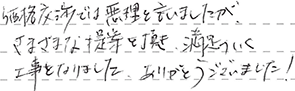 価格交渉では無理を言いましたが、
さまざまな提案を頂き、満足のいく
工事となりました。ありがとうございました!